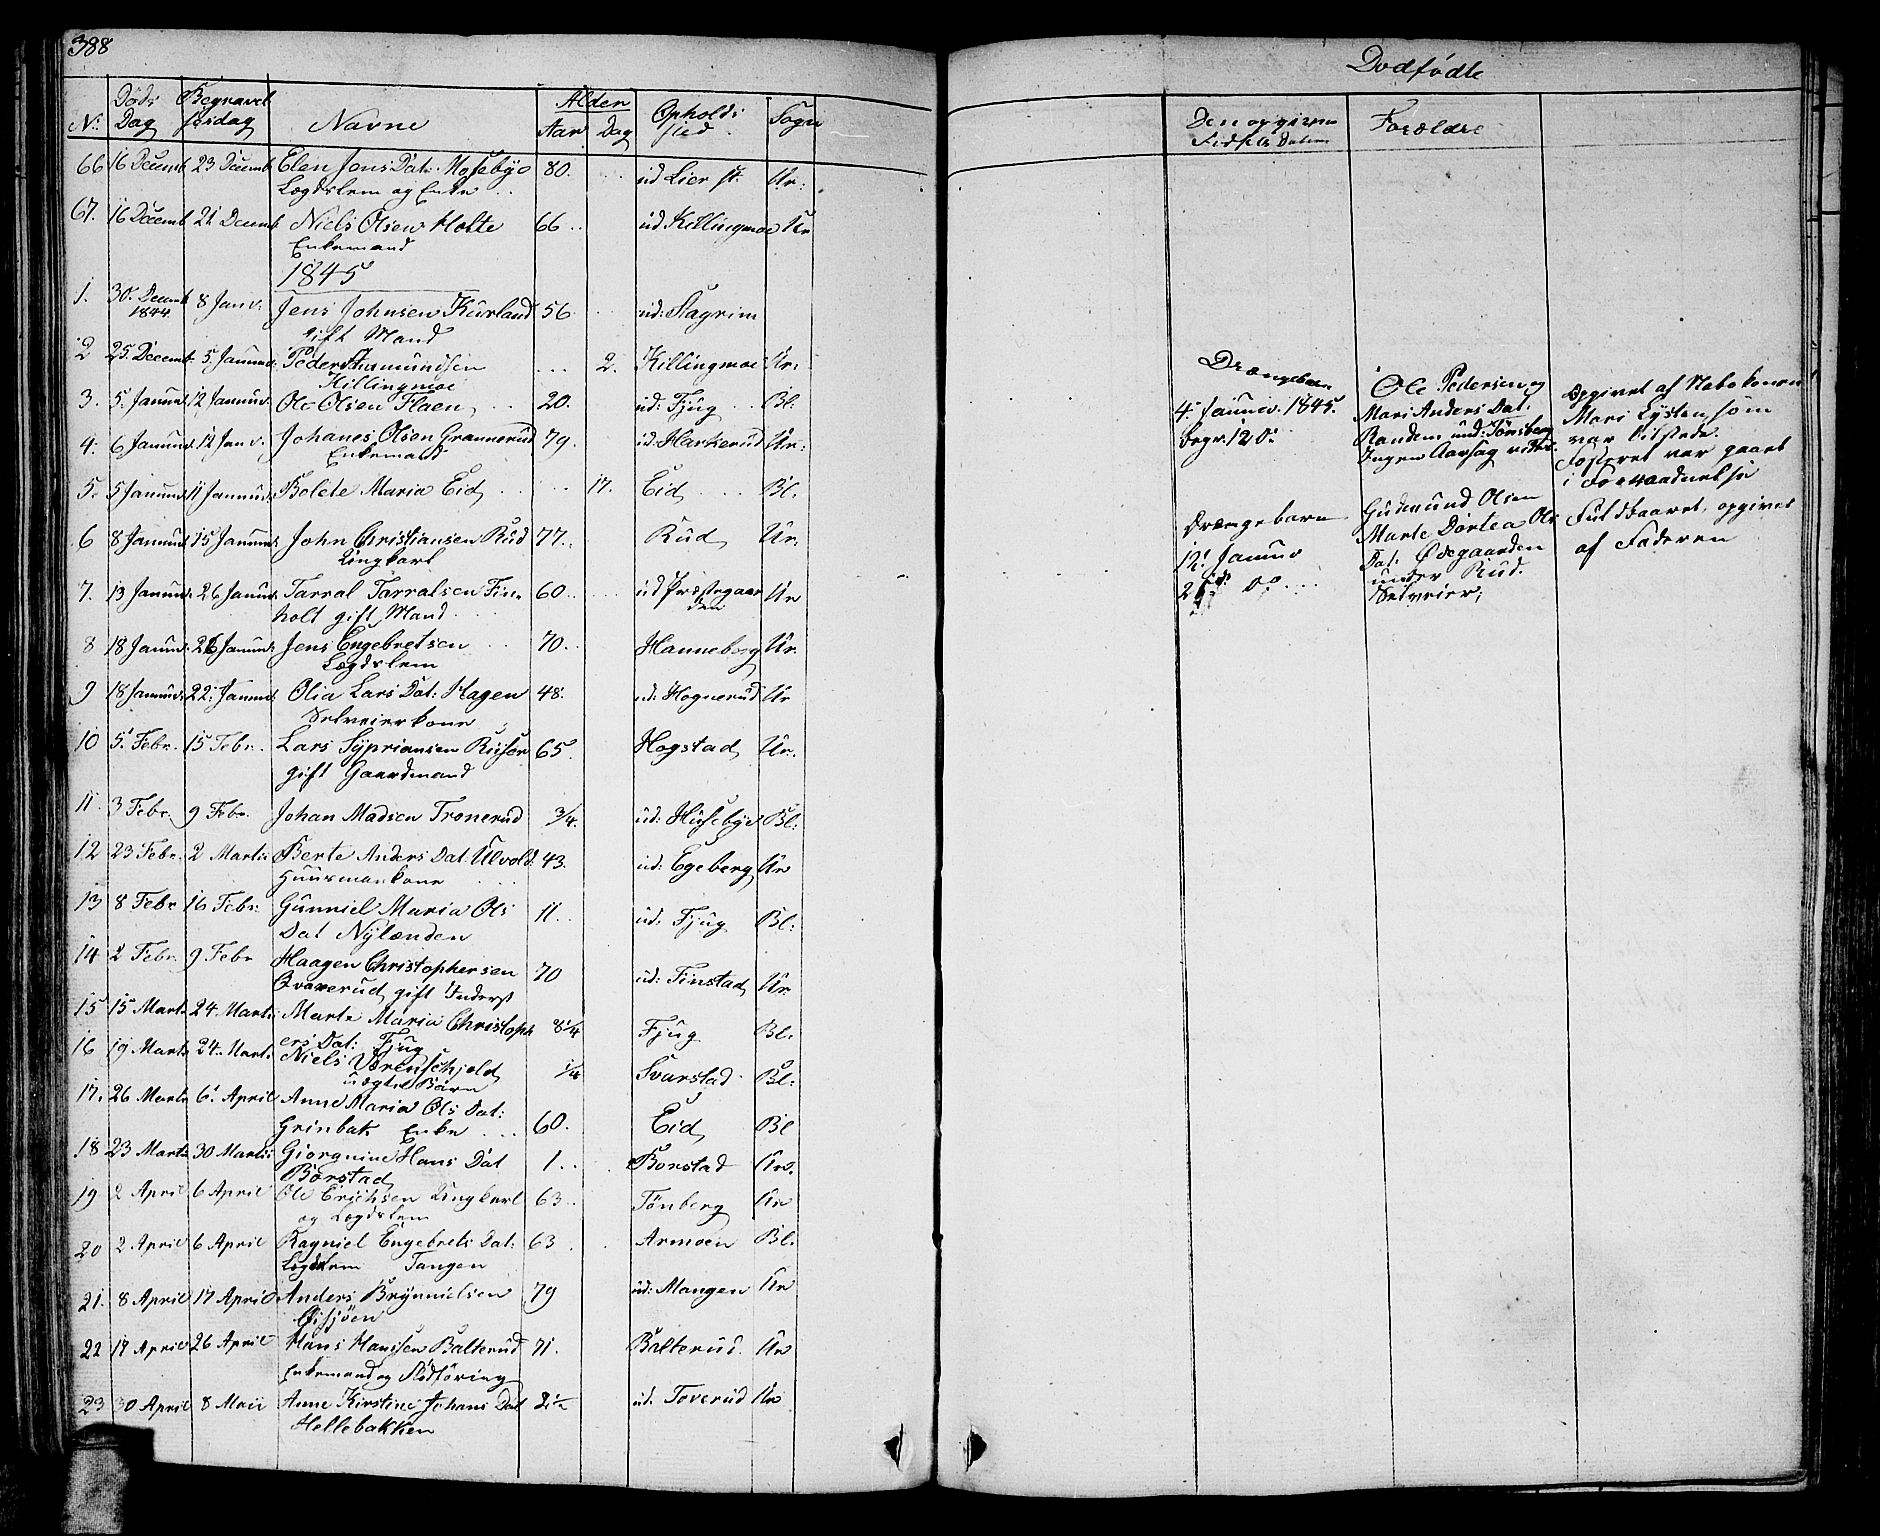 388
Døds Begravel Alder Opholds Sogn
No Dag sesdag Navne Aar Dag sted
66 16 Decemb 23 Decemb Elen Jens Dat: Mosebye 80. ud Lier Ur:
Lægdslem og Enke
67. 16 Decemb 21 Decemb Niels Olsen Holte 66 ud Killingmoe Ur
Enkemand
1845
1. 30. Decemb 8 Janv: Jens Johnsen Kurland 56 ud: Slagrim
1844 gift Mand
2 25. Decemb. 5. Januar: Peder Amundsen 2. Killingmoe Ur:
Killingmoe
3. 5. Januar 12 Januar. Ole Olsen Flaen 20. ud: Fjug Bl:
4. 6 Januar 12 Janv. Johanes Olsen Grannerud 79. ud: Harkerud Ur:
Enkemand
5. 5 Januar 11 Januar. Bolete Maria Eid 17. Eid Bl.
6 8 Januar 15 Januar. John Christiansen Rud 77. Rud Ur:
Ungkarl
7. 13 Januar. 26 Januar Tarral Tarralsen Fin= 60. ud Præstegaar Ur
holt gift Mand den
8 18 Januar 26 Januar. Jens Engebretsen 70. Hanneborg Ur.
Lægdslem
9 18 Januar. 22. Januar. Olia Lars Dat: Hagen 48. ud: Hognerud Ur
Selveierkone
10 5. Febr. 15 Febr. Lars Sypriansen Riiser 65. Hogstad Ur.
gift Gaardmand
11. 3 Febr. 9 Febr. Johan Madsen Tronerud 3/4. ud: Husebye Bl:
12 23 Febr. 2 Martii Berte Anders Dat: Ulvold: 43. ud: Egeberg Ur
Huusmankone
13 8 Febr 16 Febr. Gunniel Maria Ols 11. ud. Fjug Bl:
Dat Nylænden
14 2 Febr. 9 Febr Haagen Christophersen 70 ud: Finstad Ur.
Qvarerud gift Inderst
15 15 Marts 24 Marti: Marte Maria Christoph 8 1/4 Fjug Bl:
ers Dat: Fjug
16 19 Marts 24. Marti Niels Værenschjold 1/4 Svarstad Bl:
uægte Barn
17. 26 Marts 6. April Anne Maria Ols Dat:
Grinbak Enke 60. Eid Bl
18 23 Marts 30 Martii Giorgnine Hans Dat 1. Borstad Ur.
Borstad
19 2 April 6 April Ole Erichsen Ungkarl 63 Tønberg Ur
og Lægdslem
20 2 April 6 April Ragniel Engebrets Dat: 63 Armoen Bl.
Lægdslem Tangen
21. 8 April 17 April Anders Brynnielsen 79 ud: Mangen Ur
22 17 April 26 April Hans Hanssen Balterud 71. Balterud. Ur
Enkemand og Fledføring
23 30 April 8 Maii Anne Kirstine Johans Dat 2 1/2 ud. Toverud Ur
Hellebakken
Dødfødte
Den opgivne Forældre
Fødsels Datum
Drængebarn Ole Pedersen og Opgivet af Nabokonen
4. Januar. 1845. Mari Anders Dat: Mari Lysten som
begr. 12 D: Randem und: Tønsberg var tilstede.
Ingen Aarsag vides. Fosteret var gaaet
i Forraadnelse
Drængebarn Gudmund Olsen Fuldbaaret, opgivet
12. Januar Marte Dortea Ols af Faderen
26 do Dat: Ødegaarden
under Rud.
Selveier,